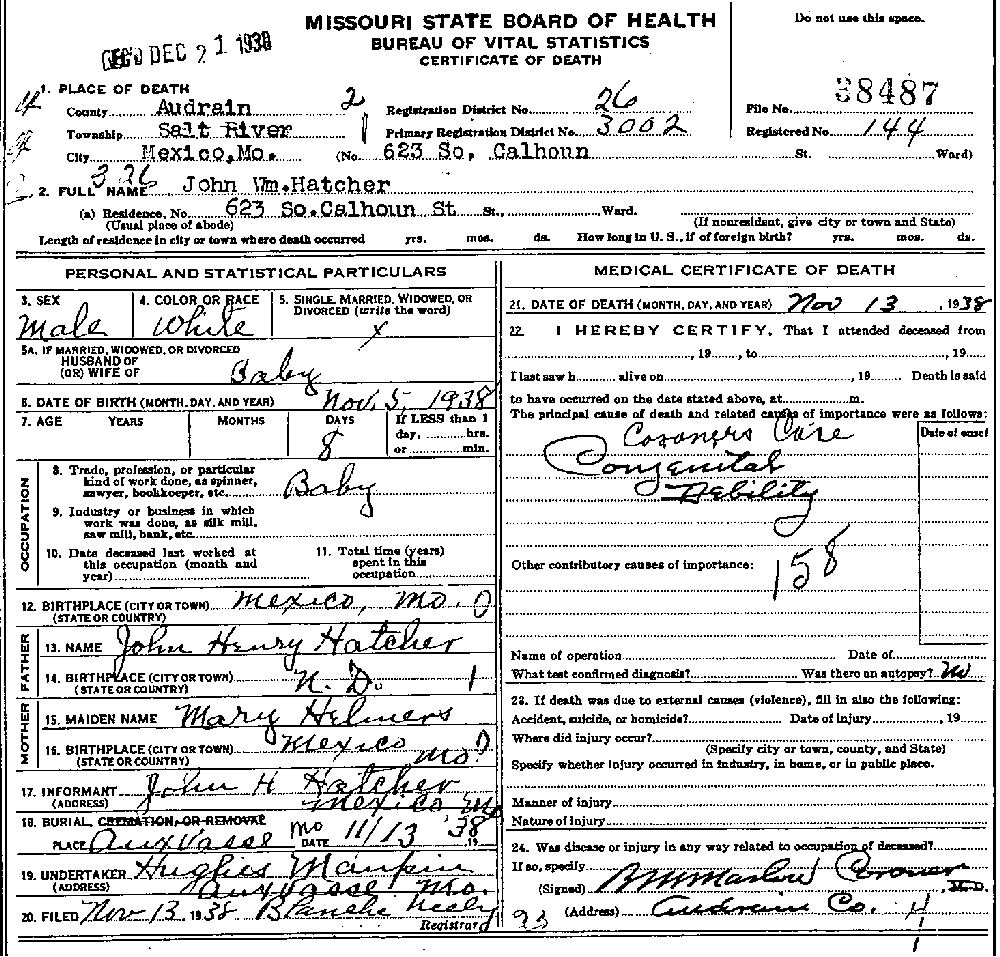 MISSOURI STATE BOARD OF HEALTH
BUREAU OF VITAL STATISTICS
CERTIFICATE OF DEATH
Do not use this space.
REC'D DEC 21 1938
1. PLACE OF DEATH
County Audrain 2 Registration District No. 26 File No. 38487
Township Salt River 1 Primary Registration District No. 3002 Registered No. 144
City Mexico, Mo. (No. 623 So, Calhoun St. Ward)
326
2. FULL NAME John Wm. Hatcher
(a) Residence, No. 623 So. Calhoun St St., Ward.
(Usual place of abode) (If nonresident, give city or town and State)
Length of residence in city or town where death occurred yrs. mos. ds. How long in U. S., if of foreign birth? yrs. mos. ds.
PERSONAL AND STATISTICAL PARTICULARS
3. SEX 4. COLOR OR RACE 5. SINGLE, MARRIED, WIDOWED, OR
DIVORCED (write the word)
Male White x
5A. IF MARRIED, WIDOWED, OR DIVORCED
HUSBAND OF
(OR) WIFE OF Baby
6. DATE OF BIRTH (MONTH, DAY, AND YEAR) Nov. 5, 1938
7. AGE YEARS MONTHS DAYS If LESS than 1
8 day, hrs.
or min.
OCCUPATION
8. Trade, profession, or particular
kind of work done, as spinner,
sawyer, bookkeeper, etc. Baby
9. Industry or business in which
work was done, as silk mill,
saw mill, bank, etc.
10. Date deceased last worked at
this occupation (month and
year)
11. Total time (years)
spent in this
occupation
12. BIRTHPLACE (CITY OR TOWN) Mexico, Mo. 0
(STATE OR COUNTRY)
FATHER
13. NAME John Henry Hatcher
14. BIRTHPLACE (CITY OR TOWN) N. D. 1
(STATE OR COUNTRY)
MOTHER
15. MAIDEN NAME Mary Helmers
16. BIRTHPLACE (CITY OR TOWN) Mexico
(STATE OR COUNTRY) Mo.
17. INFORMANT John H Hatcher
(ADDRESS) Mexico Mo
18. BURIAL, CREMATION, OR REMOVAL
PLACE Auxvasse Mo DATE 11/13 '38 19
19. UNDERTAKER Hughes Maupin
(ADDRESS) Auxvasse Mo.
20. FILED Nov 13 1938 Blanche Neely
Registrar
MEDICAL CERTIFICATE OF DEATH
21. DATE OF DEATH (MONTH, DAY, AND YEAR) Nov 13, 1938
22. I HEREBY CERTIFY, That I attended deceased from
, 19 , to , 19
I last saw h alive on , 19 Death is said
to have occurred on the date stated above, at m.
The principal cause of death and related causes of importance were as follows:
Date of onset
Coroners Case
Congenital
Debility
Other contributory causes of importance: 158
Name of operation Date of
What test confirmed diagnosis? Was there an autopsy? No
23. If death was due to external causes (violence), fill in also the following:
Accident, suicide, or homicide? Date of injury , 19
Where did injury occur?
(Specify city or town, county, and State)
Specify whether injury occurred in industry, in home, or in public place.
Manner of injury
Nature of injury
24. Was disease or injury in any way related to occupation of deceased?
If so, specify
(Signed) Coroner M. D.
(Address) Audrain Co.